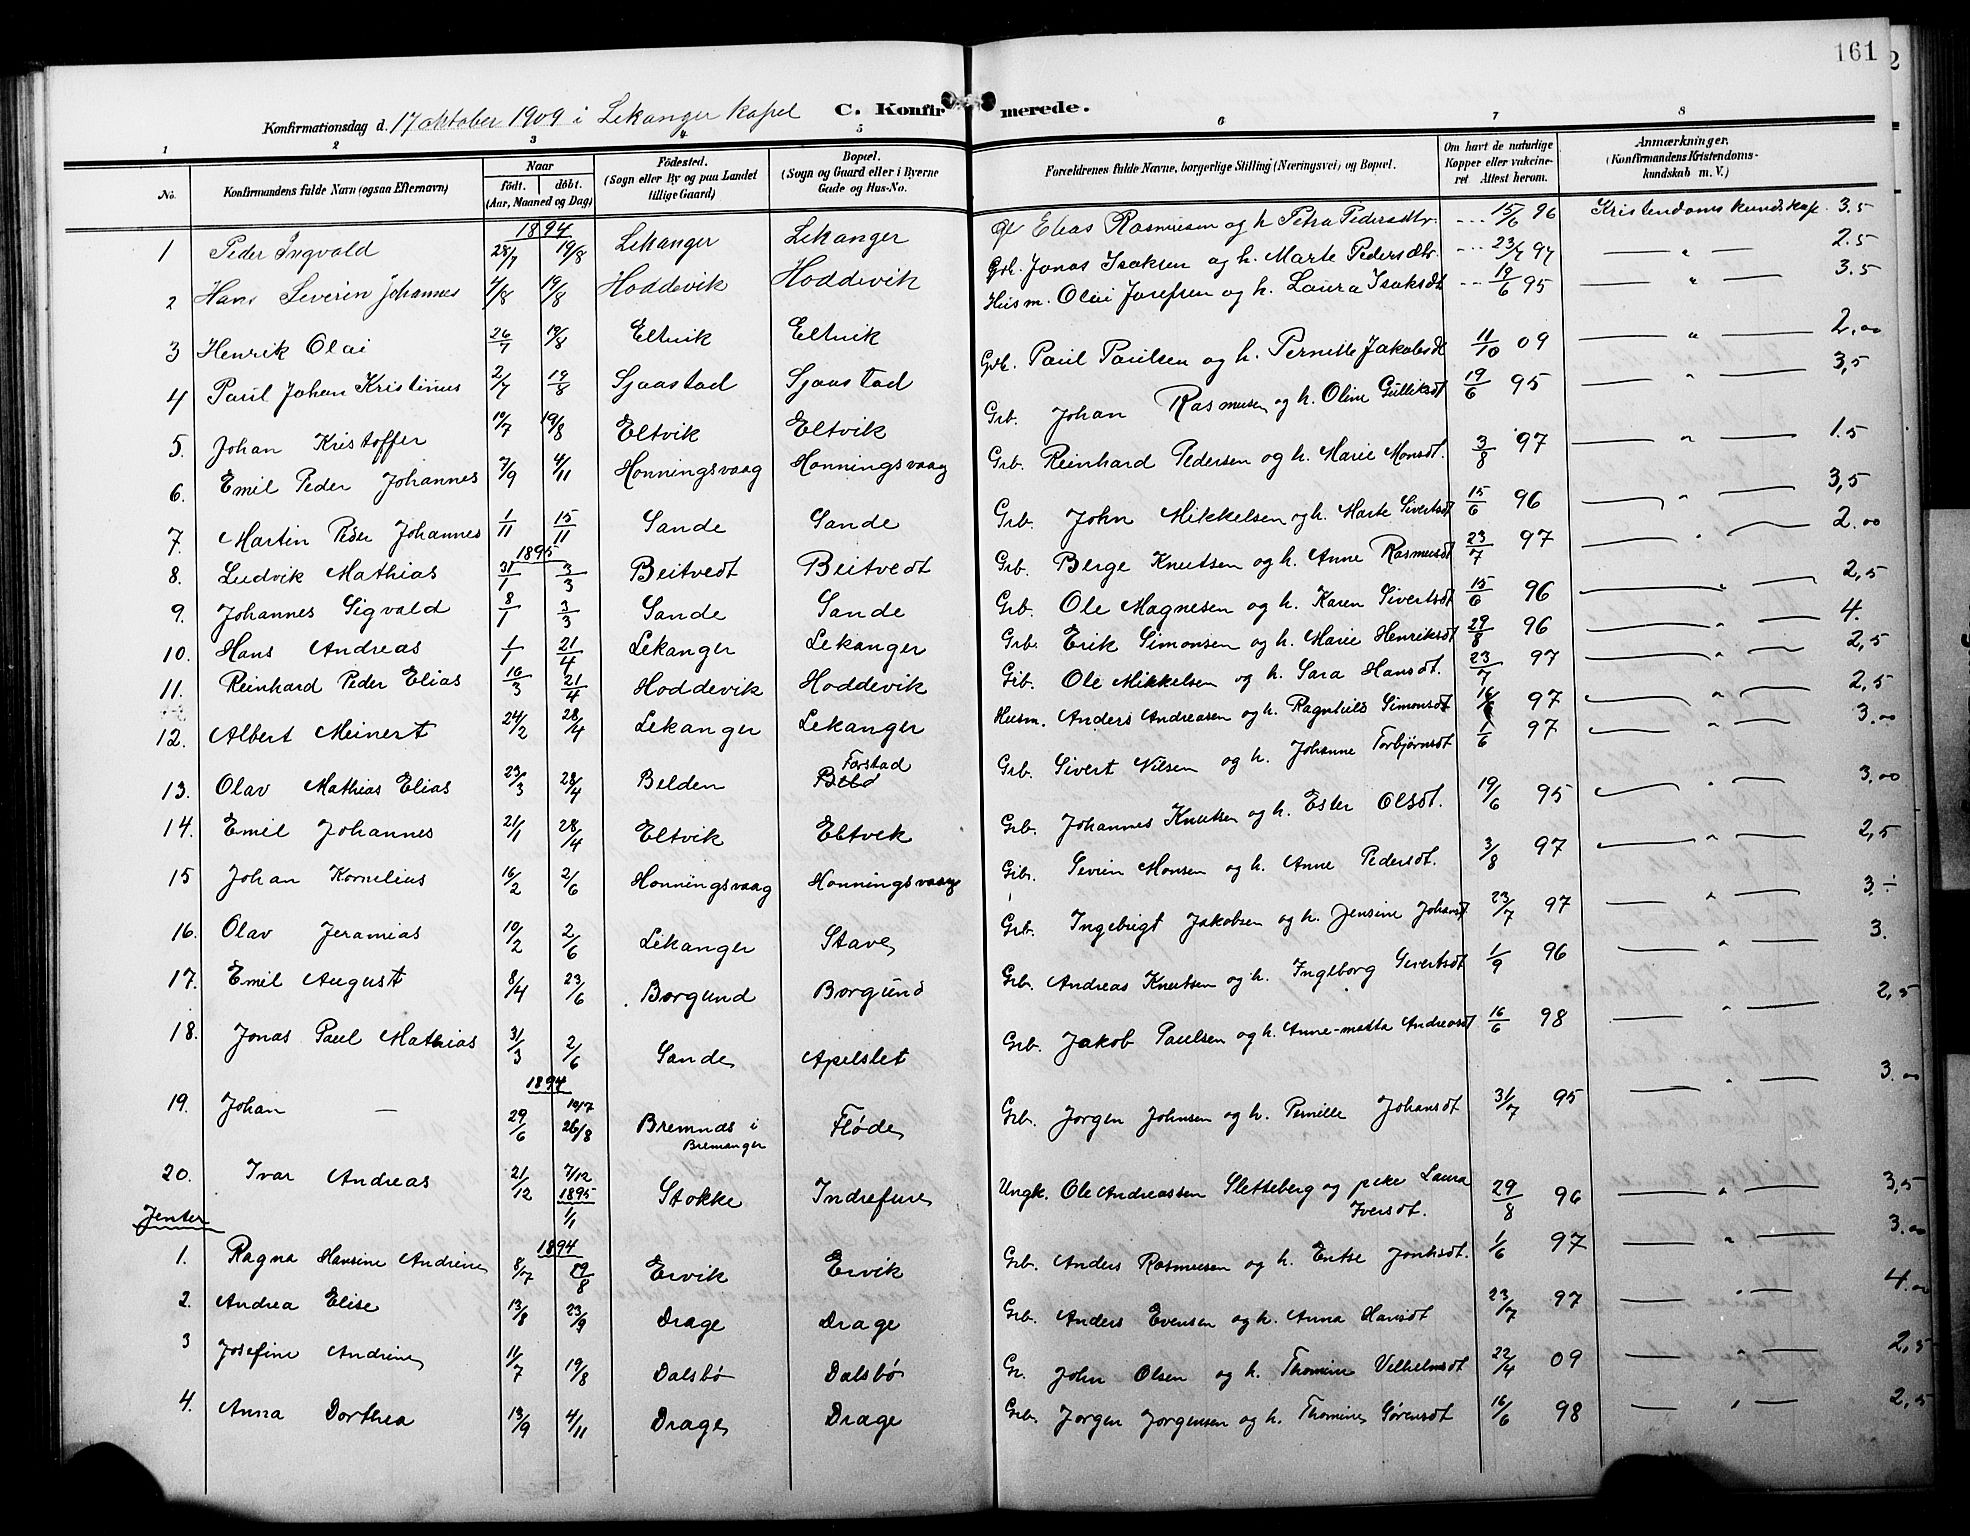 161
Konfirmationsdag d. 17 oktober 1909 i Lekanger kapel C. Konfirmerede.
1 2 3 4 5 6 7 8
No. Konfirmandens fulde Navn (ogsaa Efternavn) Naar født. døbt. (Aar, Maaned og Dag) Fødested. (Sogn eller By og paa Landet tillige Gaard) Bopæl. (Sogn og Gaard eller i Byerne Gade og Hus-No. Forældrenes fulde Navne, borgerlige Stilling (Næringsvei) og Bopæl. Om havt de naturlige Kopper eller vaccineret Attest herom. Anmærkninger. (Konfirmandens Kristendomskundskab m. V.)
1894
1 Peder Ingvald 28/7 19/8 Lekanger Lekanger Elias Rasmusen og h. Petra Pedersdtr. 15/6 96 Kristendoms kundskap 3.5
2 Hans Severin Johannes 4/8 19/8 Hoddevik Hoddevik Grb. Jonas Isaksen og h. Marte Pedersdtr. 23/7 97 — " — 2.5
3 Henrik Olai 26/7 19/8 Eltvik Eltvik Husm. Olai Josefsen og h. Laura Isaksdt 19/6 95 — " — 3.5
4 Paul Johan Kristinus 2/7 19/8 Sjaastad Sjaastad Grb. Paul Paulsen og h. Pernille Jakobsdt 11/10 09 — " — 2,00
5. Johan Kristoffer 10/7 19/8 Eltvik Eltvik Grb. Johan Rasmusen og h. Oline Gulliksdt 19/6 95 — " — 3,5
6. Emil Peder Johannes 7/9 4/11 Honningsvaag Honningsvaag Grb. Reinhard Pedersen og h. Marie Monsdt. 3/8 97 — " — 1.5
7. Martin Peder Johannes 1/11 15/11 Sande Sande Grb. John Mikkelsen og h. Marte Sivertsdt 15/6 96 — " — 3,5
1895
8. Ludvik Mathias 31/1 3/3 Beitvedt Beitvedt Grb. Berge Knutsen og h. Anne Rasmusdt 23/7 97 — " — 2.00
9. Johannes Sigvald 8/1 3/3 Sande Sande Grb. Ole Magnesen og h. Karen Sivertsdt 15/6 96 — " — 2,5
10. Hans Andreas 1/1 21/4 Lekanger Lekanger Grb. Erik Simonsen og h. Marie Henriksdt 29/8 96 — " — 4.
11. Reinhard Peder Elias 10/3 21/4 Hoddevik Hoddevik Grb. Ole Mikkelsen og h. Sara Hansdt. 23/7 97 — " — 2,5
12. Albert Meinert 24/2 28/4 Lekanger Lekanger Husm. Anders Andreasen og h. Ragnhild Simonsdt 16/6 97 — " — 2,5
13. Olav Mathias Elias 23/3 28/4 Belden Forstad Grb. Sivert Nilsen og h. Johanne Torbjørnsdt 1/6 97 — " — 3.00
14. Emil Johannes 21/1 28/4 Eltvik Eltvik Grb. Johannes Knutsen og h. Ester Olsdt. 19/6 95 — " — 3,00
15 Johan Kornelius 16/2 2/6 Honningsvaag Honningsvaag Grb. Sivein Monsen og h. Anne Pedersdt. 3/8 97 — " — 2,5
16. Olav Jeramias 10/2 2/6 Lekanger Stave Grb. Ingebrigt Jakobsen og h. Jensine Johansdt 23/7 97 — " — 3.
17. Emil August 8/4 23/6 Borgund Borgund Grb. Andreas Knutsen og h. Ingeborg Sivertsdt 1/9 96 — " — 3.
18. Jonas Paul Mathias 31/3 2/6 Sande Apelslet Grb. Jakob Paulsen og h. Anne-matta Andreasdt 16/6 98 — " — 2,5
1894
19. Johan — 29/6 10/7 26/8 Bremnæs i Bremanger Fløde Grb. Jorgen Johnsen og h. Pernille Johansdt 31/7 95 — " — 3.00
20. Ivar Andreas 21/12 7/12 1895 1/1 Stokke Indrefure Ungk. Ole Andreassen Sletteberg og pike Laura Iversdt. 29/8 96 — " — 3,5
Jenter
1894
1. Ragna Hansine Andrine 8/7 19/8 Ervik Ervik Grb. Anders Rasmusen og h. Jonhsdt. 1/6 97 — " — 3.00
2. Andrea Elise 13/8 23/9 Drage Drage Grb. Anders Evensen og h. Anna Hansdt 23/7 97 — " — 4.00
3 Josefine Andrine 11/7 19/8 Dalsbø Dalsbø Gr. John Olsen og h. Thomine Vilhelmsdt 22/4 09 — " — 2,5
4. Anna Dorthea 13/9 4/11 Drage Drage Grb. Jorgen Jorgensen og h. Thomine Sørensdt 16/6 98 — " — 2,5